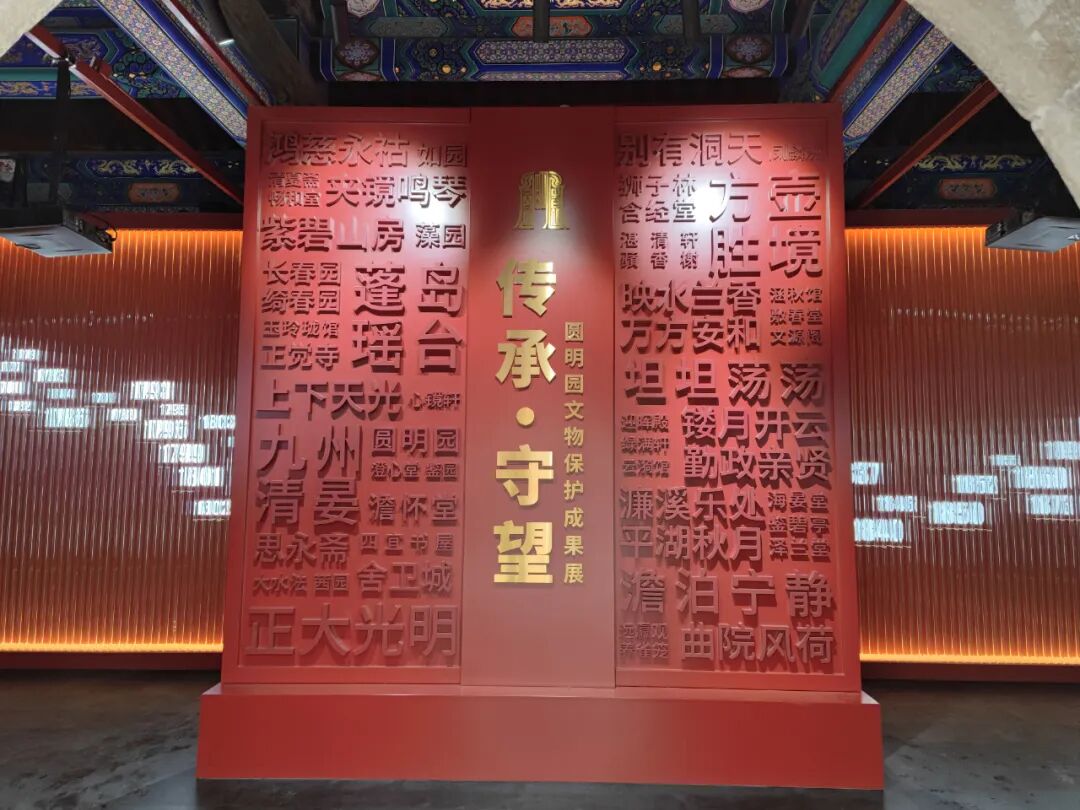 鸿慈永祜 如园
清夏斋
畅和堂
夹镜鸣琴
紫碧山房 藻园
长春园
绮春园
蓬岛
瑶台
玉玲珑馆
正觉寺
上下天光 心镜轩
九州
清晏
圆明园
澄心堂 鉴园
澹怀堂
思永斋 四宜书屋
大水法 西园 舍卫城
正大光明
传承·守望
圆明园文物保护成果展
别有洞天
狮子林
含经堂
方壶
胜境
湛清轩
蘋香榭
映水兰香
万方安和
涵秋馆
敷春堂
文源阁
坦坦荡荡
迎晖殿
绿满轩
云涧馆
镂月开云
勤政亲贤
濂溪乐处
平湖秋月
海晏堂
鉴碧亭
泽兰堂
澹泊宁静
远瀛观
养雀笼
曲院风荷